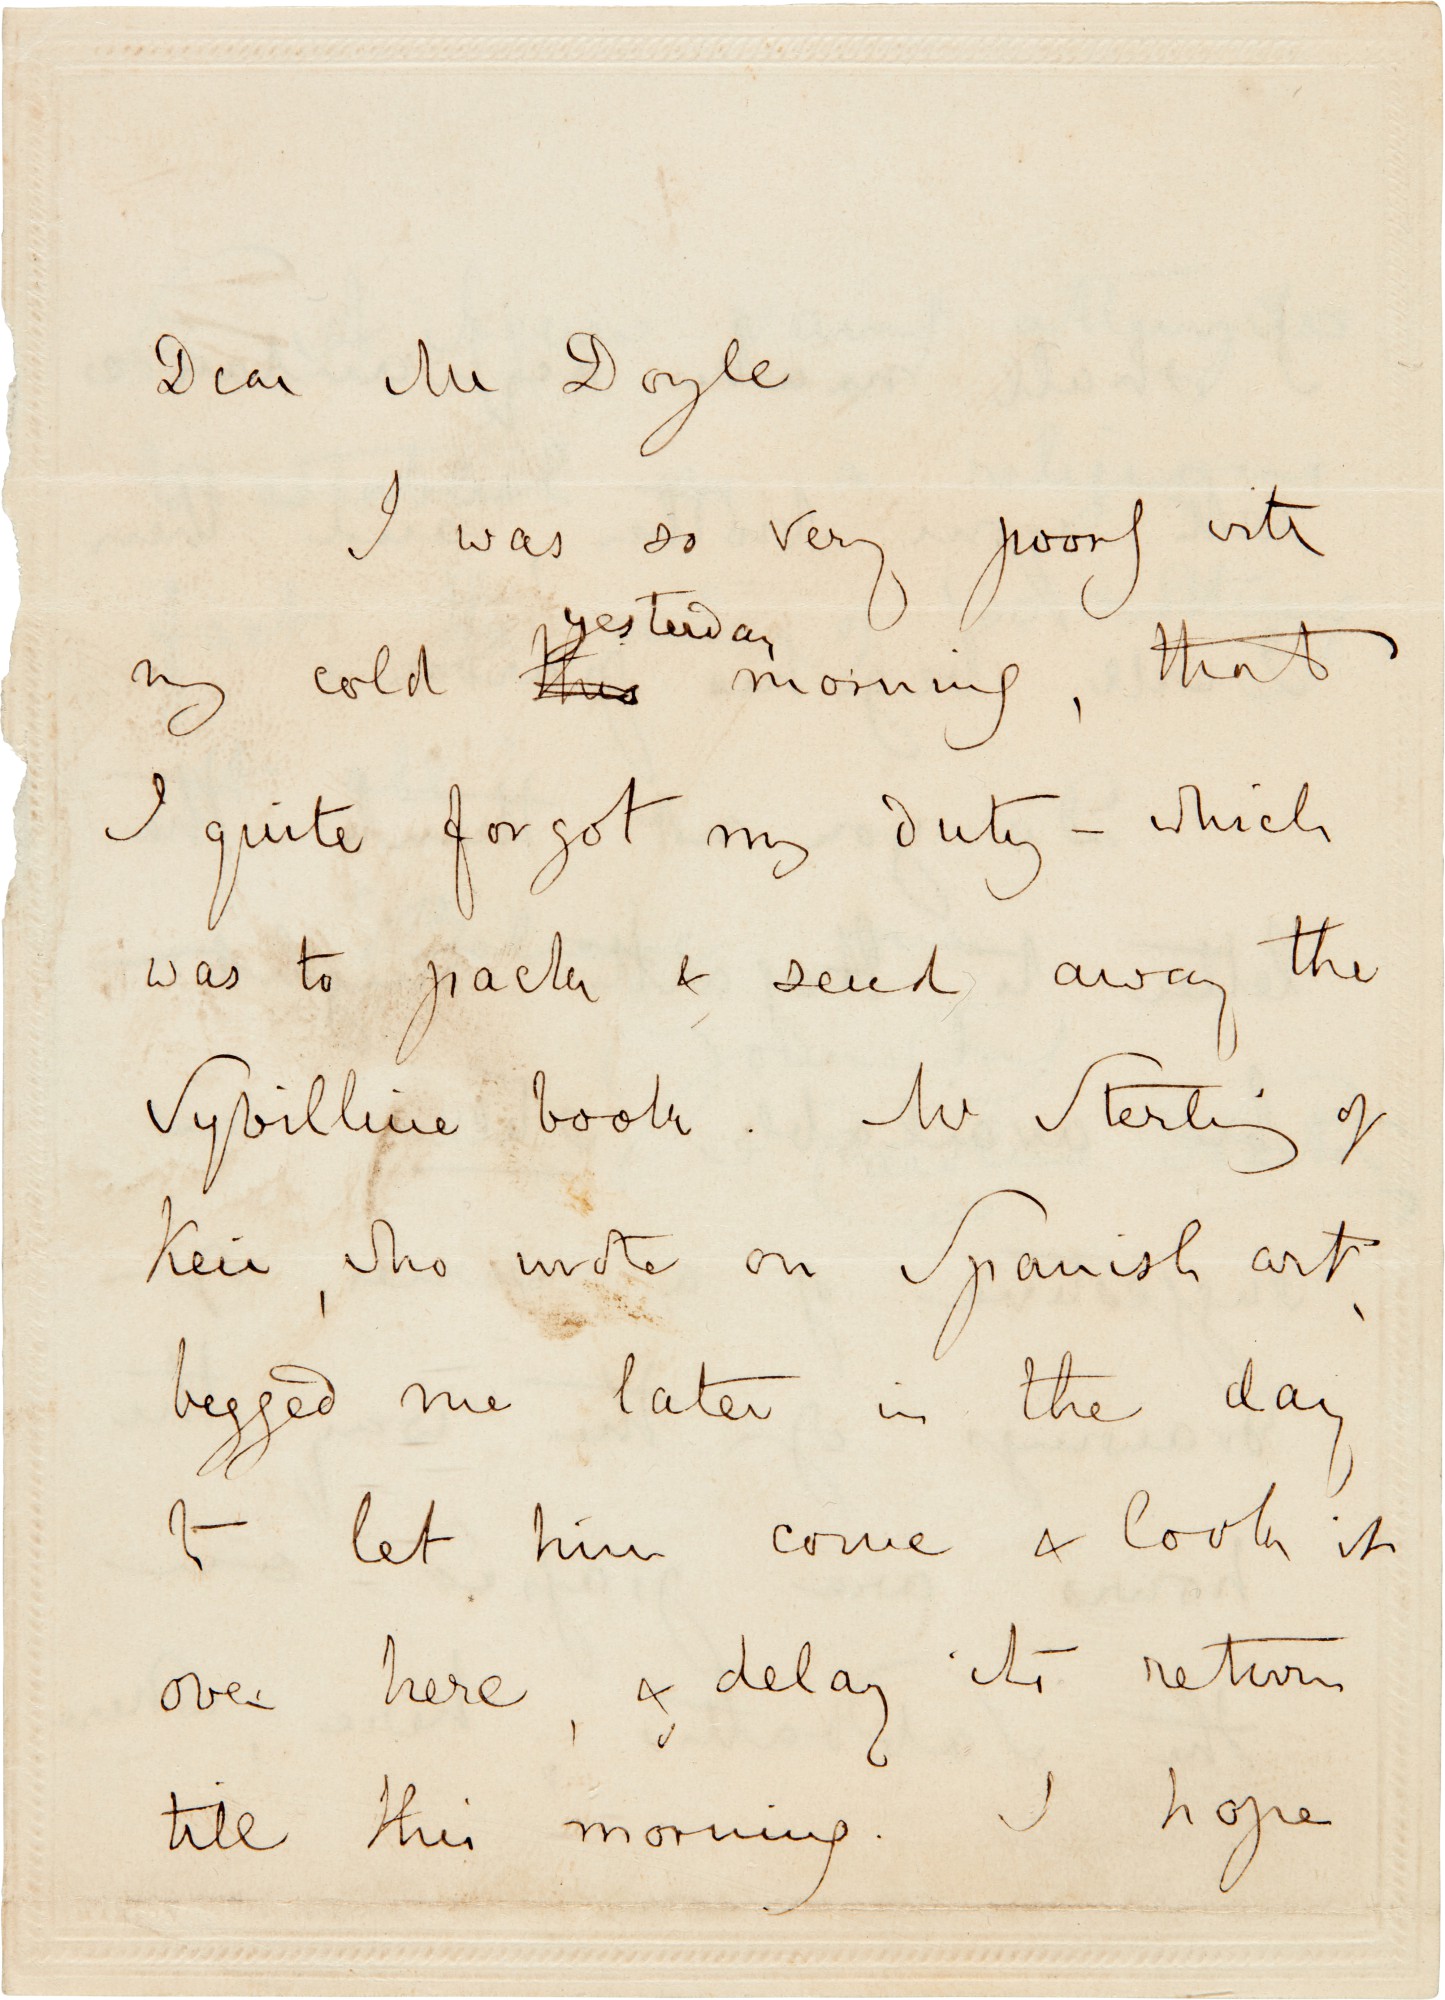 Dear Mr Doyle
I was so very poorly with
yesterday
my cold this morning, that
I quite forgot my duty – which
was to pack & send away the
Sybilline book. Mr Sterling of
Keir, who wrote on Spanish art,
begged me later in the day
to let him come & look it
over here, & delay its return
till this morning. I hope